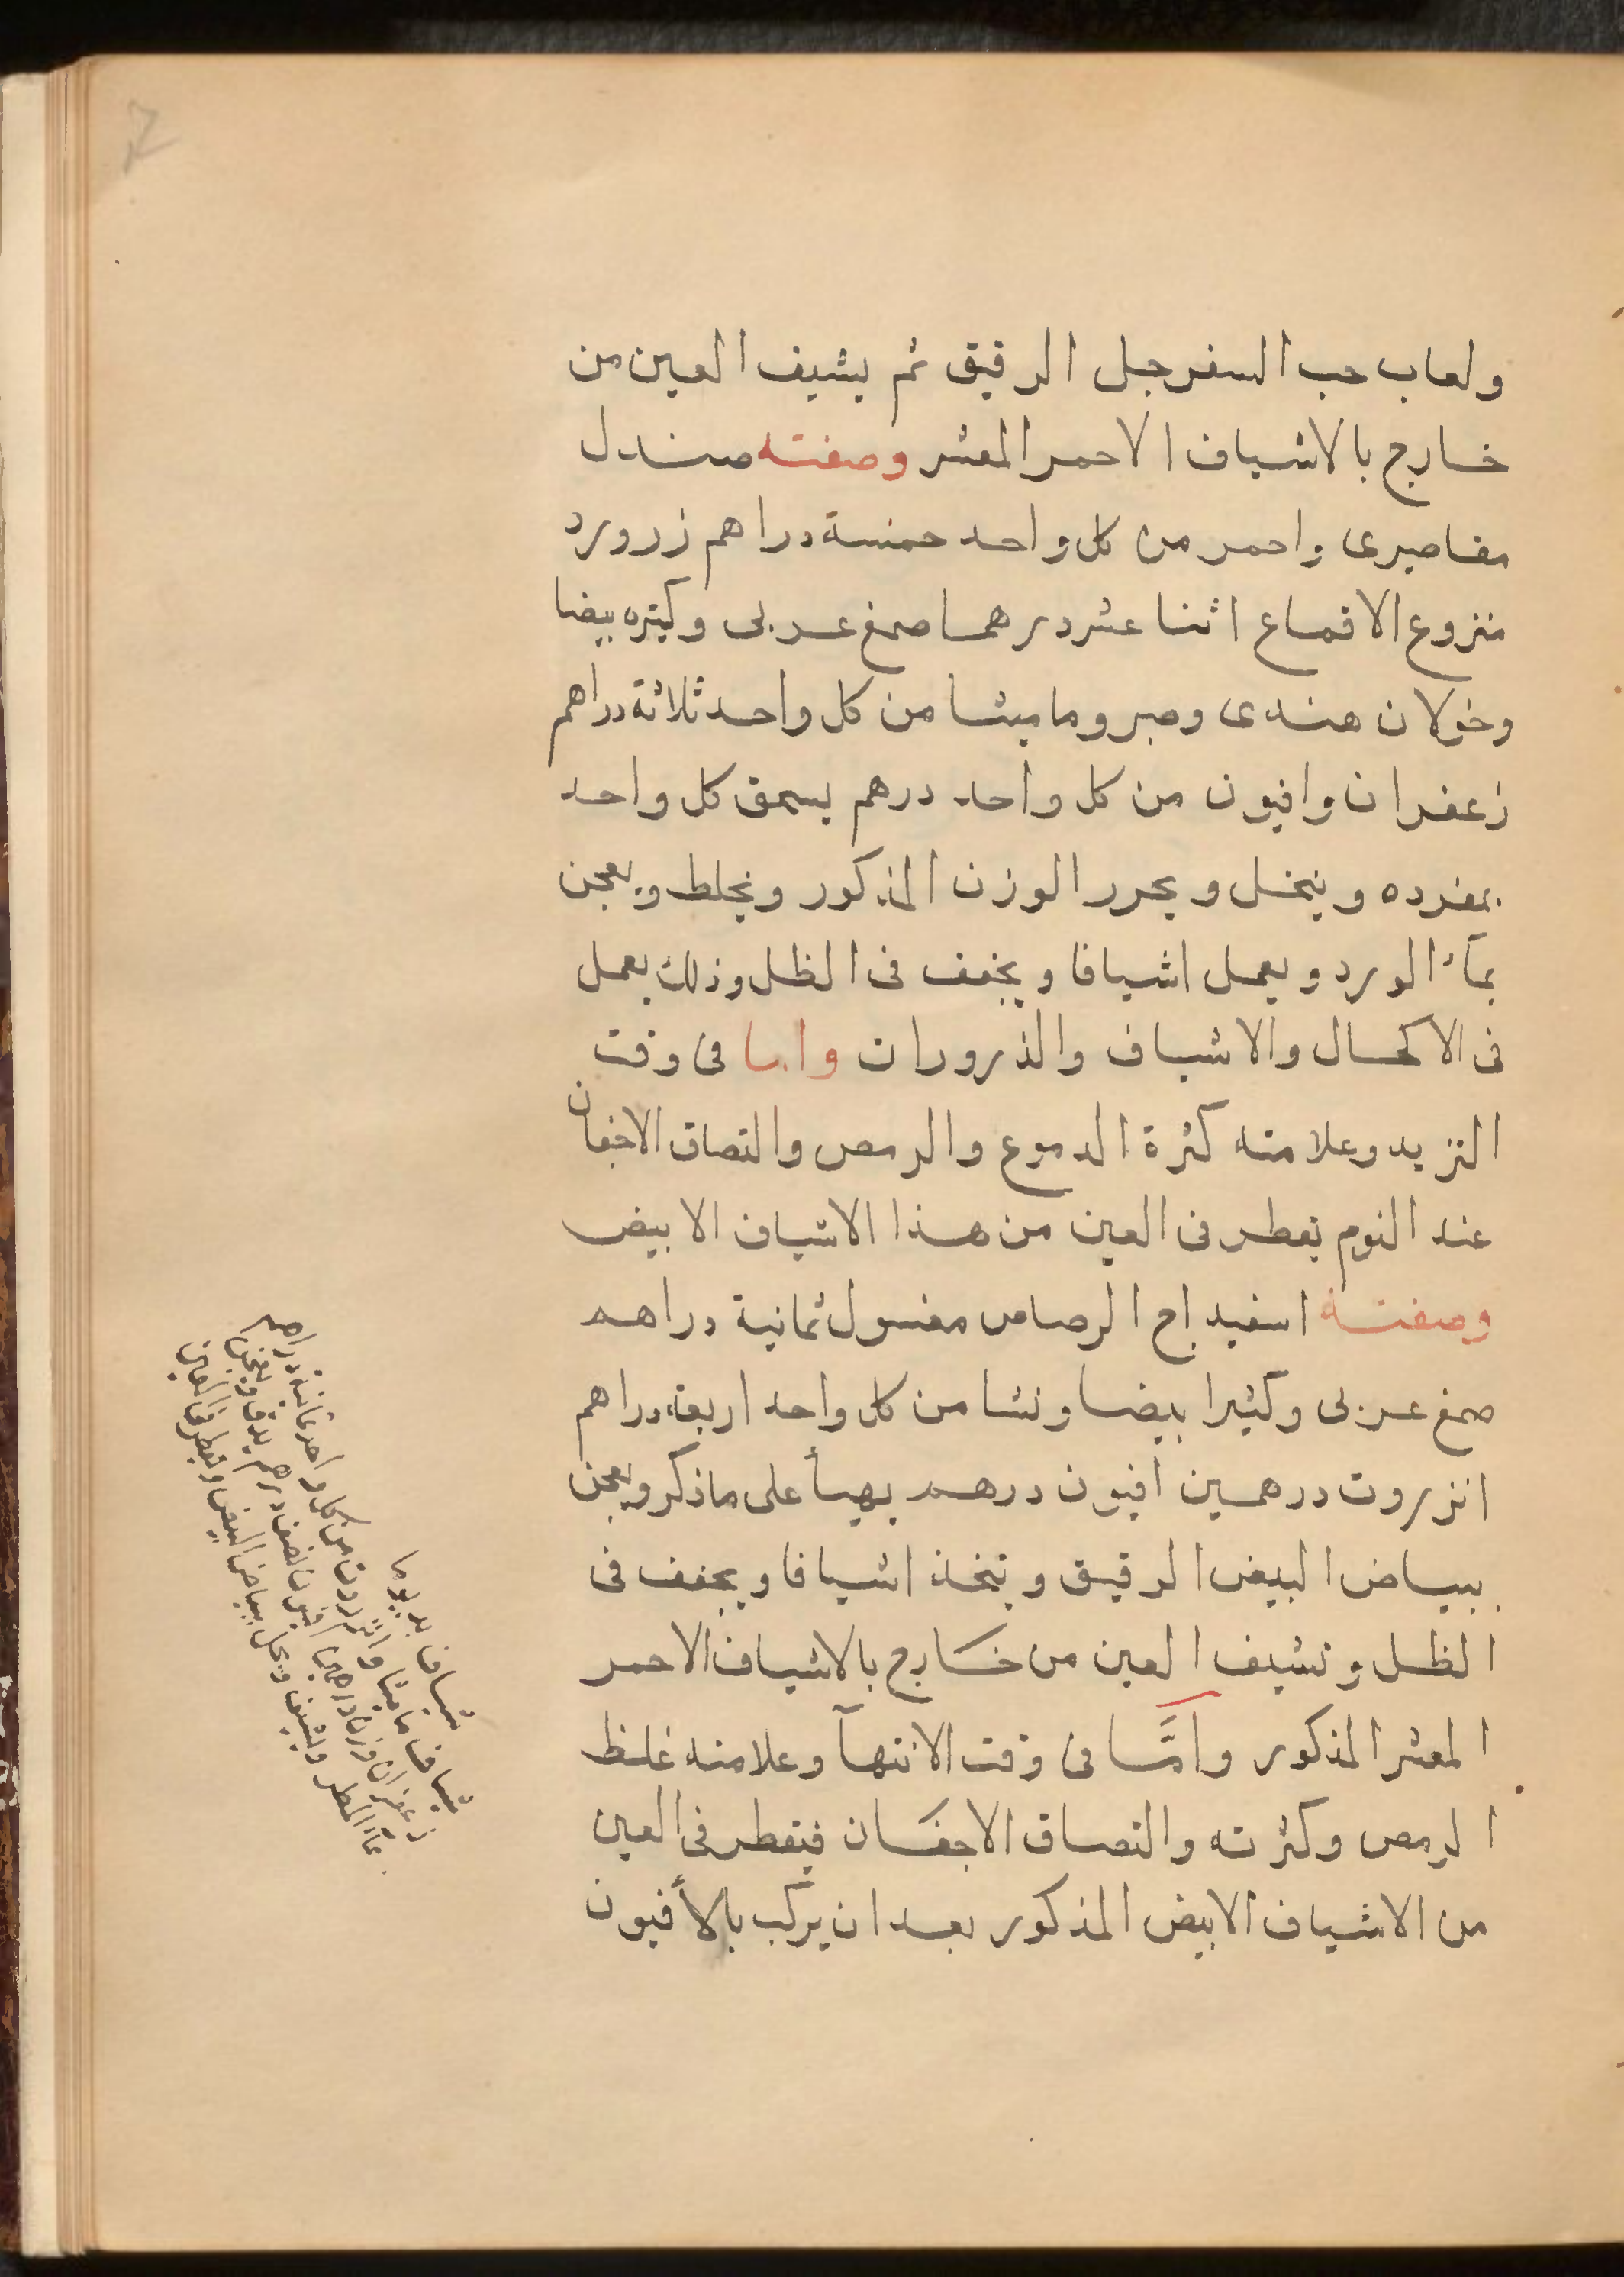 ولعاب حب السفرجل الرقيق ثم يشيف العين من
خارج بالاشياف الاحمر المعشر وصفته صندل
مقاصيرى واحمر من كل واحد خمسة دراهم زر ورد
منزوع الاقماع اثنا عشر درهما صمغ عربى وكيتره بيضا
وخولان هندى وصبر وماميثا من كل واحد ثلاثة دراهم
زعفران وافيون من كل واحد درهم يسحق كل واحد
بمفرده وينخل ويحرر الوزن المذكور ويخلط ويعجن
بمآء الورد ويعمل اشيافا ويجفف فى الظل وذلك يعمل
فى الاكحال والاشياف والذرورات واما فى وقت
التزيد وعلامته كثرة الدموع والرمص والتصاق الاجفان
عند النوم يقطر فى العين من هذا الاشياف الابيض
وصفته اسفيداج الرصاص مغسول ثمانية دراهم
صمغ عربى وكثيرا بيضا ونشا من كل واحد اربعة دراهم
انزروت درهمين افيون درهم يهيأ على ما ذكر ويعجن
ببياض البيض الرقيق ويتخذ اشيافا ويجفف فى
الظل وتشيف العين من خارج بالاشياف الاحمر
المعشر المذكور وامَّا فى وقت الانتهآ وعلامته غلظ
الرمص وكثرته والتصاق الاجفان فيقطر فى العين
من الاشياف الابيض المذكور بعد ان يركب بالأفيون
شياف
شياف ماميثا وانزروت من كل واحد ثمانية دراهم
زعفران وزن درهمين افيون نصف درهم يدق ويعجن
بمآء المطر ويشيف ويحل ببياض البيض ويقطر فى العين